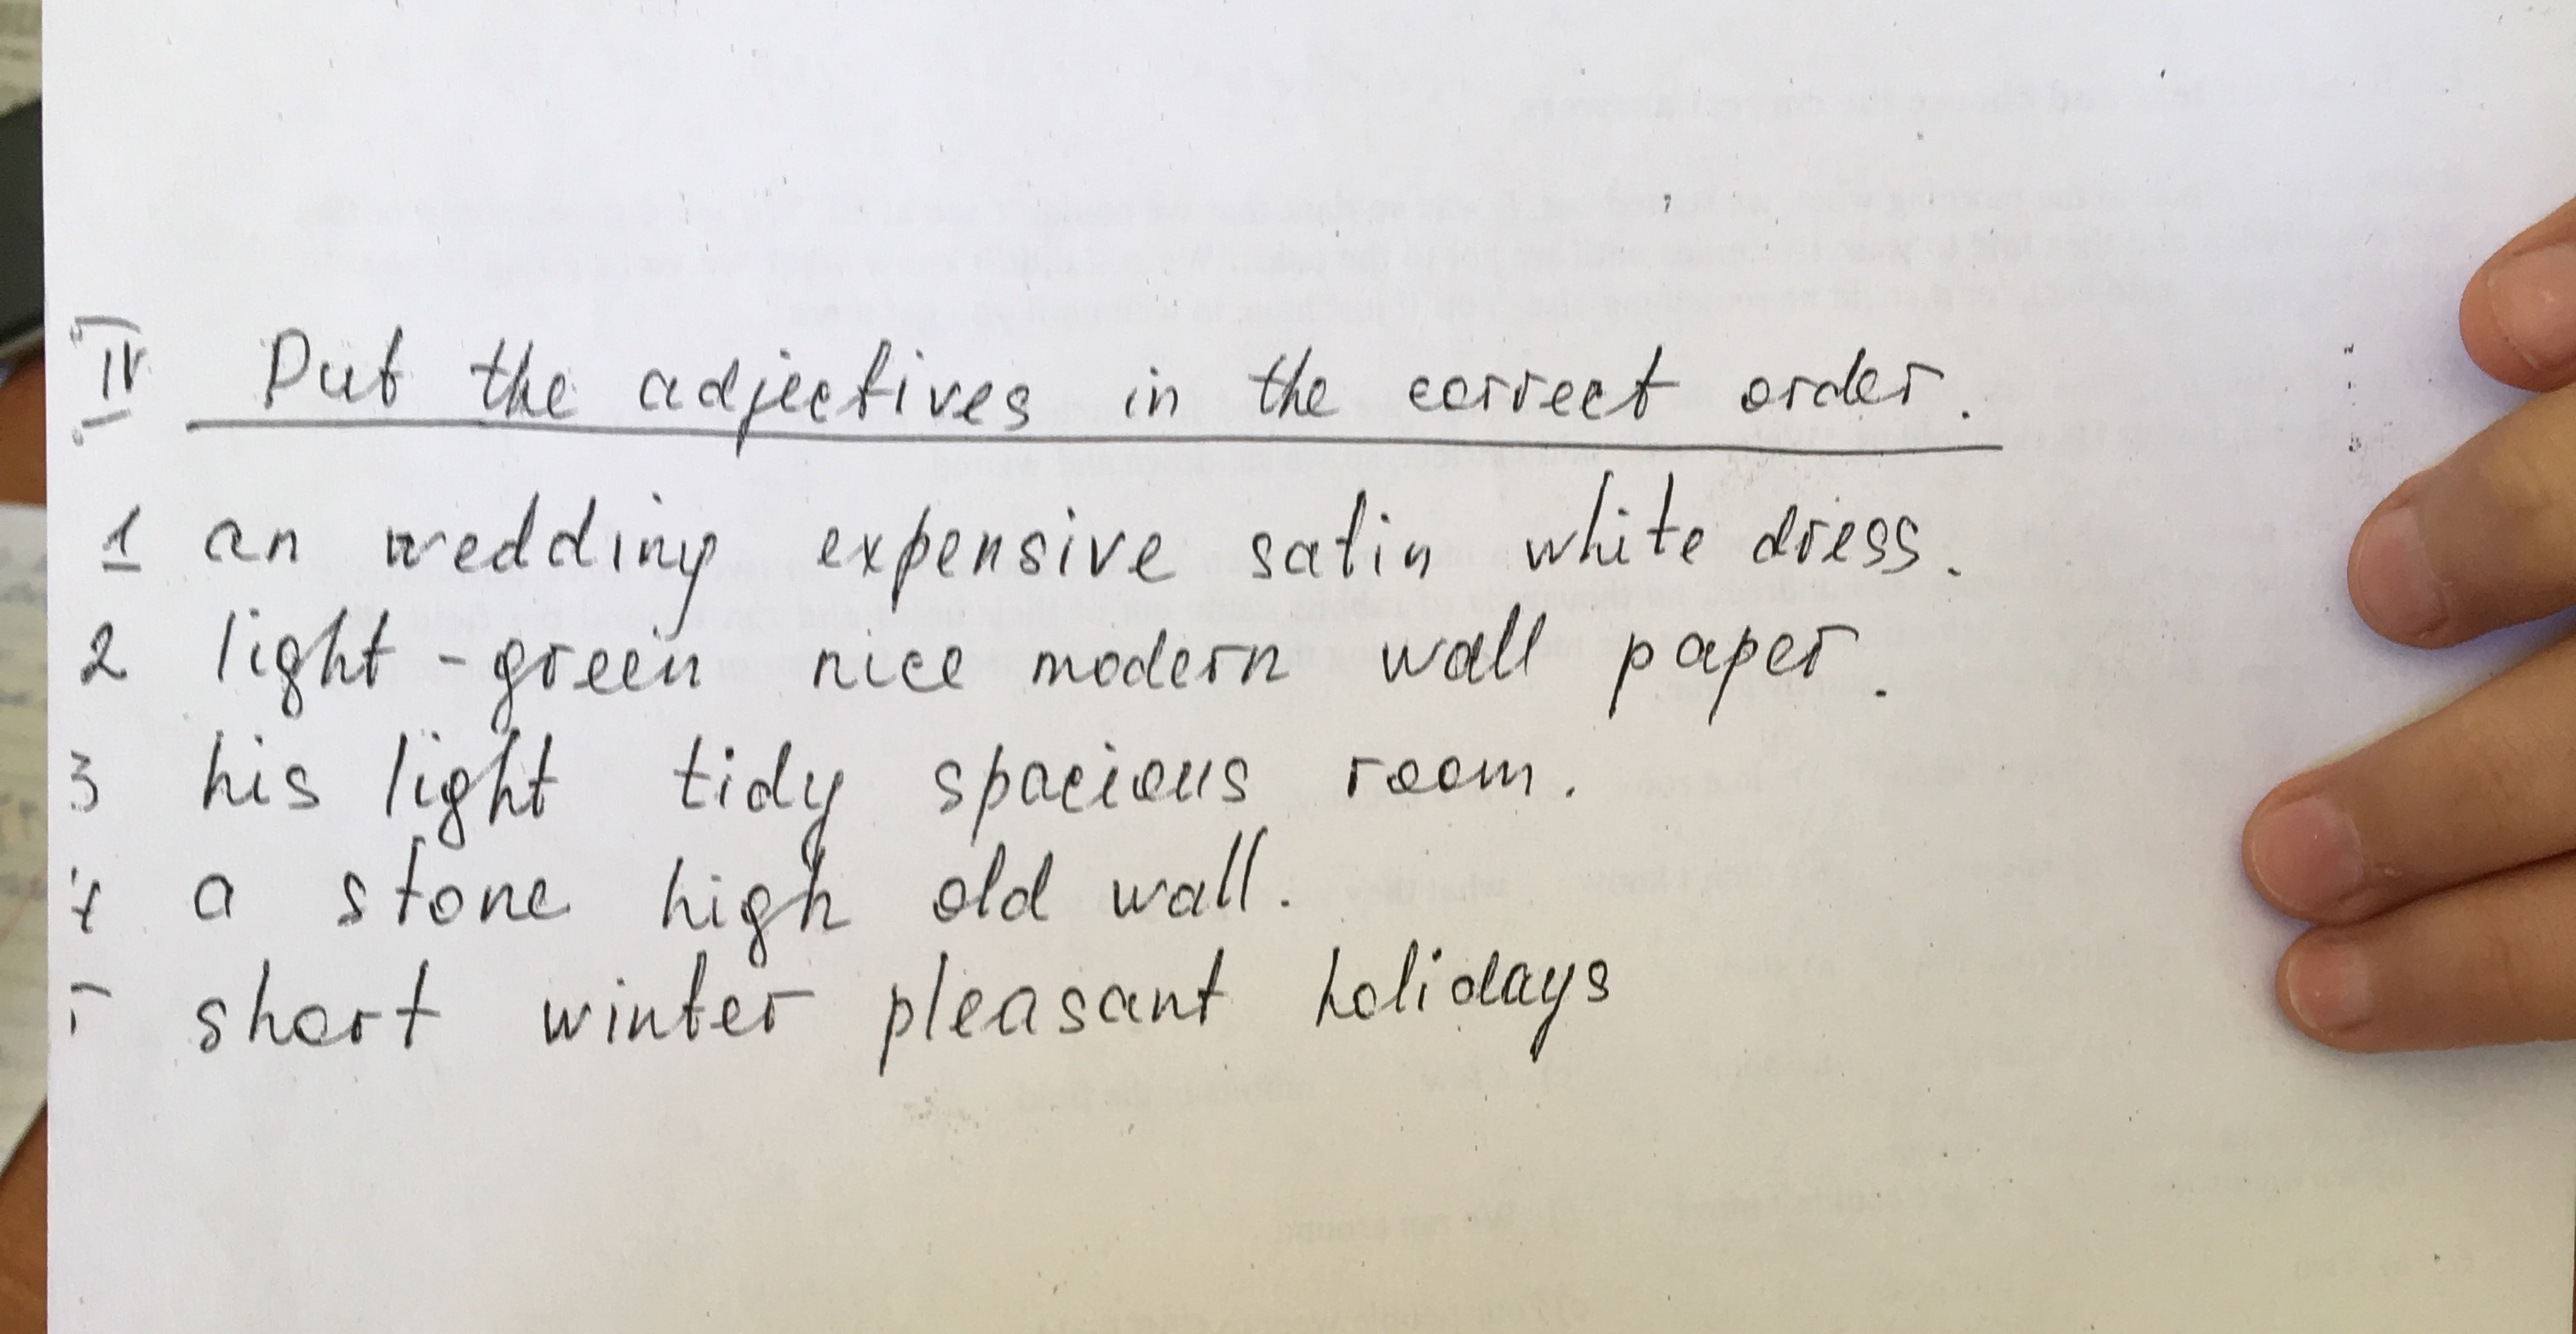 IV Put the adjectives in the correct order.
1 an wedding expensive satin white dress.
2 light-green nice modern wall paper.
3 his light tidy spacious room.
4 a stone high old wall.
5 short winter pleasant holidays